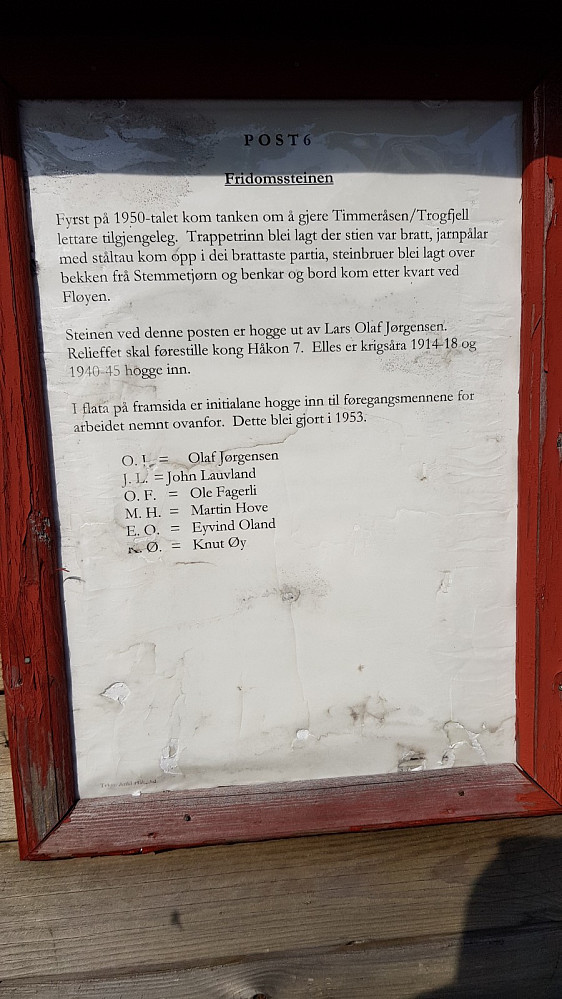 POST 6
Fridomssteinen
Fyrst på 1950-talet kom tanken om å gjere Timmeråsen/Trogfjell
lettare tilgjengeleg. Trappetrinn blei lagt der stien var bratt, jarnpålar
med ståltau kom opp i dei brattaste partia, steinbruer blei lagt over
bekken frå Stemmetjørn og benkar og bord kom etter kvart ved
Fløyen.
Steinen ved denne posten er hogge ut av Lars Olaf Jørgensen.
Relieffet skal førestille kong Håkon 7. Elles er krigsåra 1914-18 og
1940-45 hogge inn.
I flata på framsida er initialane hogge inn til føregangsmennene for
arbeidet nemnt ovanfor. Dette blei gjort i 1953.
O. J. = Olaf Jørgensen
J. L. = John Lauvland
O. F. = Ole Fagerli
M. H. = Martin Hove
E. O. = Eyvind Oland
K. Ø. = Knut Øy